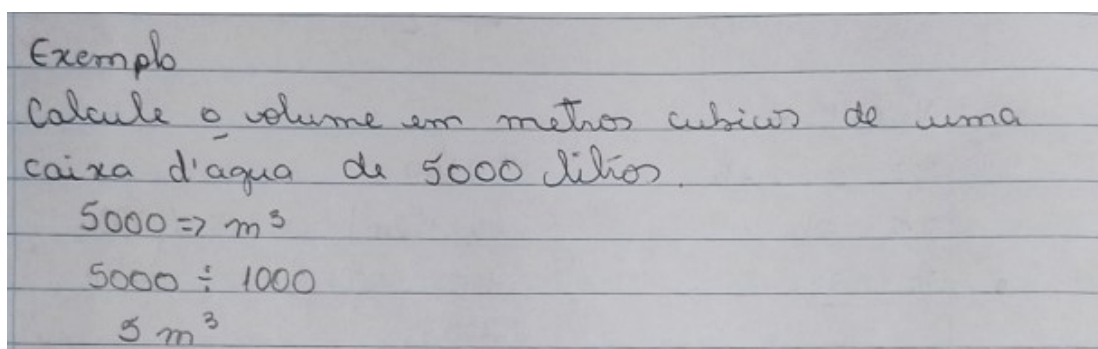 Exemplo
Calcule o volume em metros cubicos de uma
caixa d'agua de 5000 litros.
5000 => m³
5000 ÷ 1000
5 m³